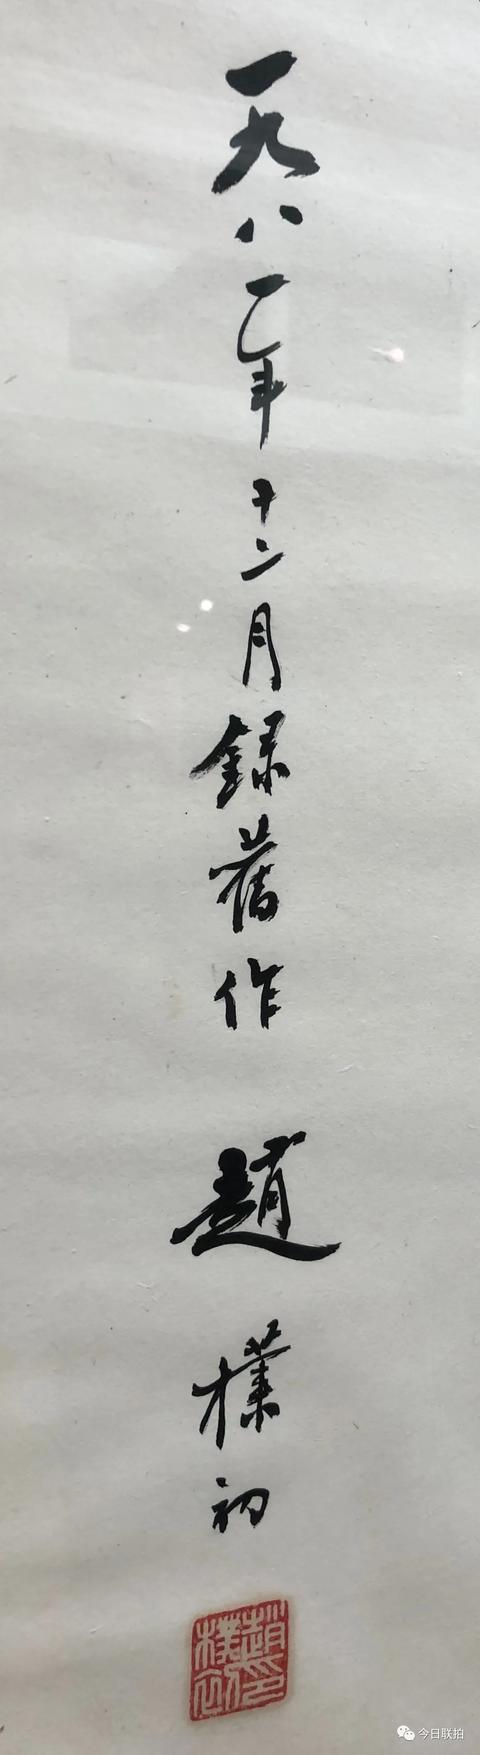 一九八一年十二月録舊作 趙樸初
趙印樸初
今日联拍